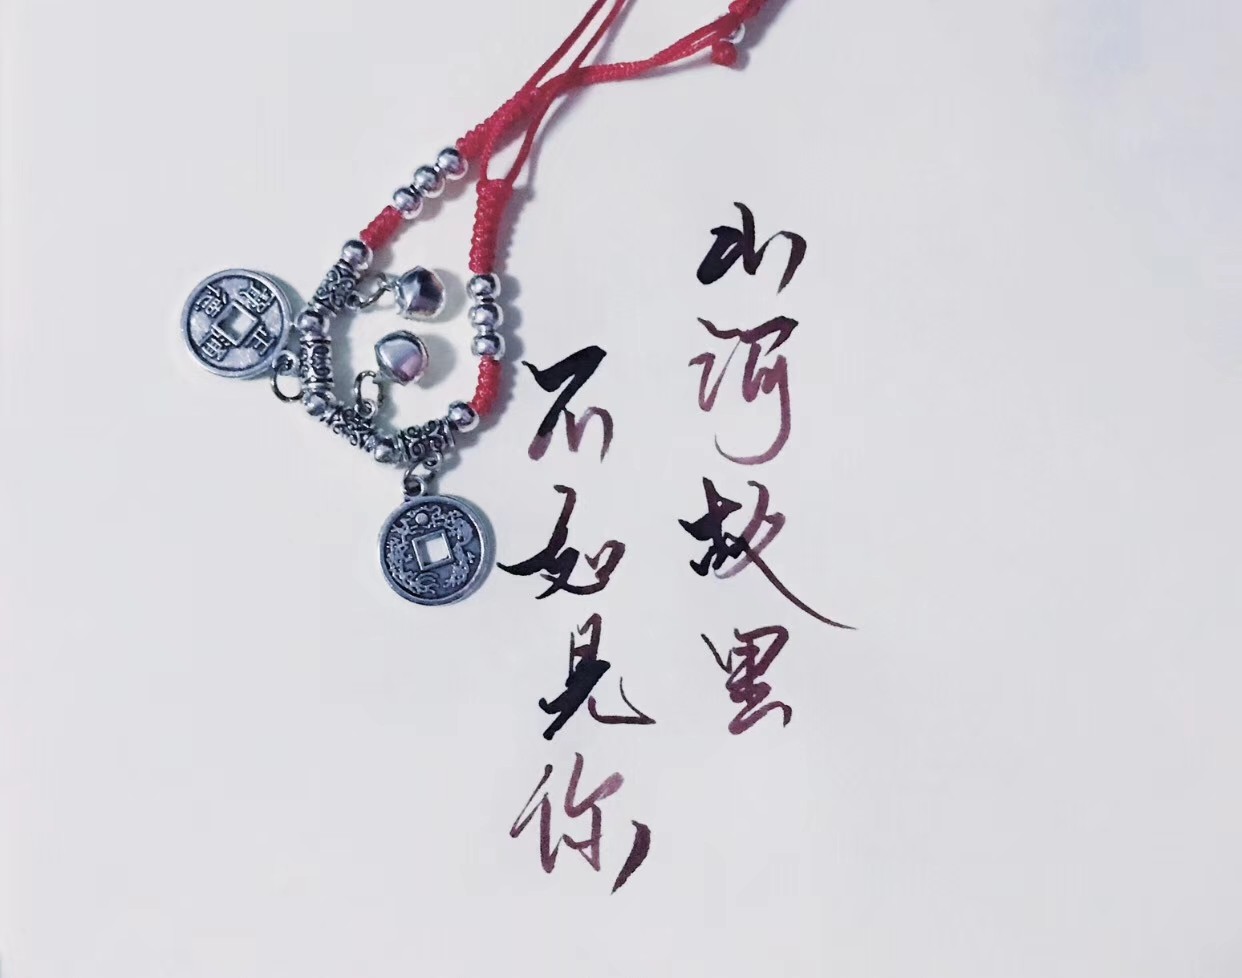 山河故里
不如见你